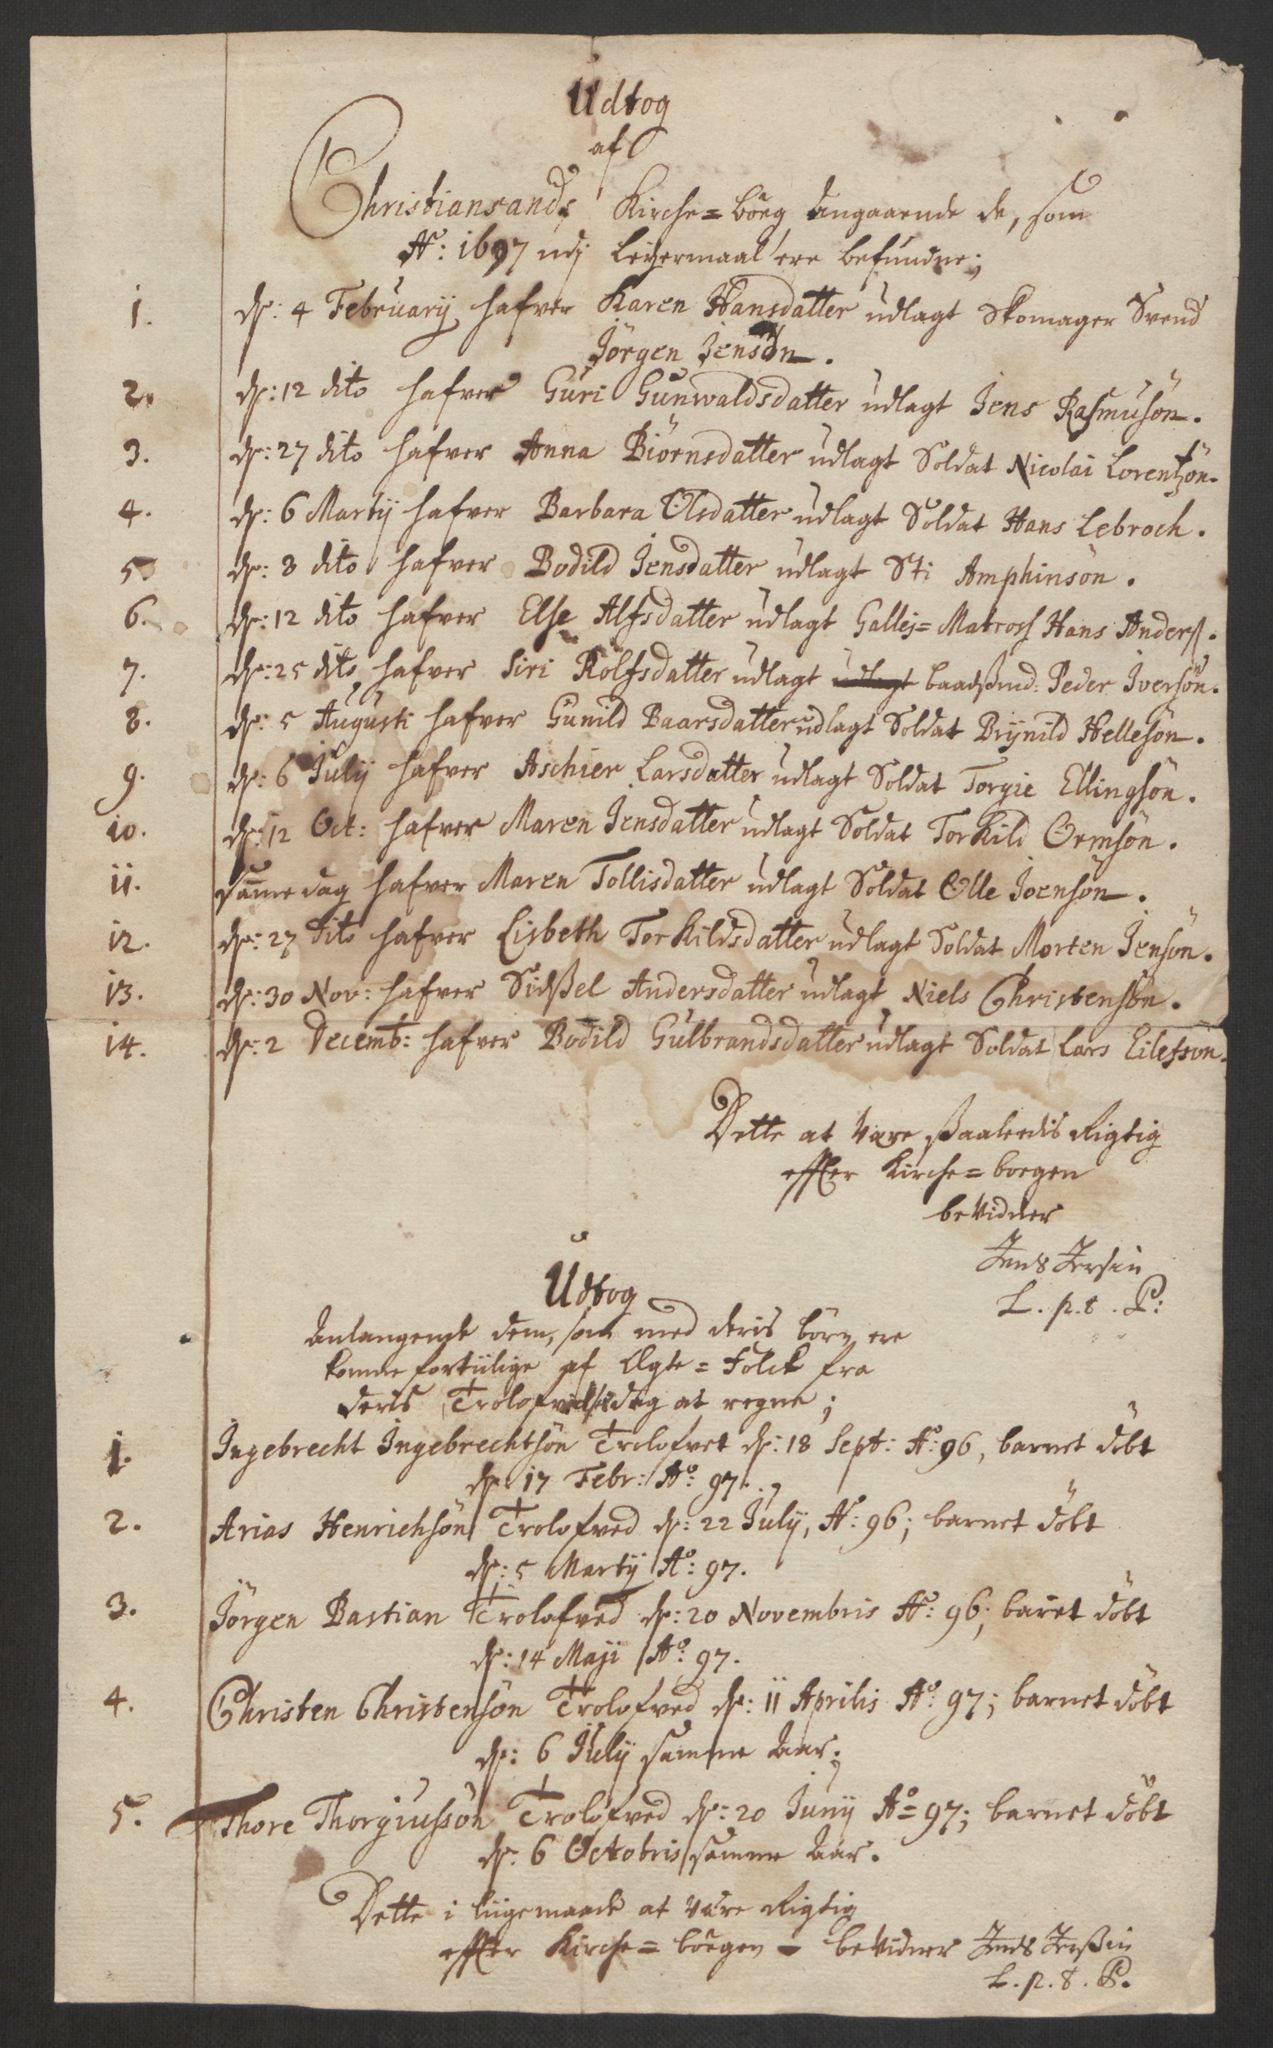 Udtog
af
Christiansands Kirche=boeg angaaende de, som
Aº: 1697 udj Leyermaal ere befundne;
1. dn: 4 February hafver Karen Hansdatter udlagt Skomager Svend
Jörgen Jensön.
2. dn: 12 dito hafver Guri Gunwaldsdatter udlagt Jens Rasmusön.
3. dn: 27 dito hafver Anna Biörnsdatter udlagt Soldat Nicolai Lorentzön.
4. dn: 6 Martij hafver Barbara Olsdatter udlagt Soldat Hans Lebroch.
5 dn: 8 dito hafver Bodild Jensdatter udlagt Sti Amphinsön.
6. dn: 12 dito hafver Else Alfsdatter udlagt Gallej=Matross Hans Anderß.
7. dn: 25 dito hafver Siri Rolfsdatter udlagt udlagt baadßmd: Peder Iversön.
8. dn: 5 Augusti hafver Gunild Baarsdatter udlagt Soldat Brÿnild Hellesön.
9. dn: 6 Julij hafver Aschier Larsdatter udlagt Soldat Torgie Ellingsön.
10. dn: 12 Oct: hafver Maren Jensdatter udlagt Soldat Torkild Ormsön.
11. samme dag hafver Maren Tollisdatter udlagt Soldat Olle Joensön.
12. dn: 27 dito hafver Lisbeth Torkildsdatter udlagt Soldat Morten Jensön.
13. dn: 30 Nov: hafver Sidßel Andersdatter udlagt Niels Christensön.
14. dn: 2 Decemb: hafver Bodild Gulbrandsdatter udlagt Soldat Lars Eilefsön.
Dette at være ßaaledis Rigtig
effter Kirche=boegen
beVidner
Jens Jersin
L. p. t. P:
Udtog
Anlangende dem, som med deris börn ere
komne fortiilige af Ægte=Folck fra
deris Trolofvelsis dag at regne;
1. Ingebrecht Ingebrechtsön Trolofvet dn: 18 Sept: Aº: 96, barnet döbt
dn: 17 Febr: Aº: 97.
2. Arias Henrichsön Trolofved dn: 22 Julij, Aº: 96; barnet döbt
dn: 5 Martij Aº: 97.
3. Jörgen Bastian Trolofved dn: 20 Novembris Aº: 96; barnet döbt
dn: 14 Maji Aº: 97.
4. Christen Christensön Trolofved dn: 11 Aprilis Aº: 97; barnet döbt
dn: 6 Julij samme Aar;
5. Thore Thorgiussön Trolofved dn: 20 Junij Aº= 97; barnet döbt
dn: 6 Octobris samme Aar.
Dette i liigemaade at være Rigtig
effter Kirche=boegen - beVidner Jens Jerßin
L. p. t. P.